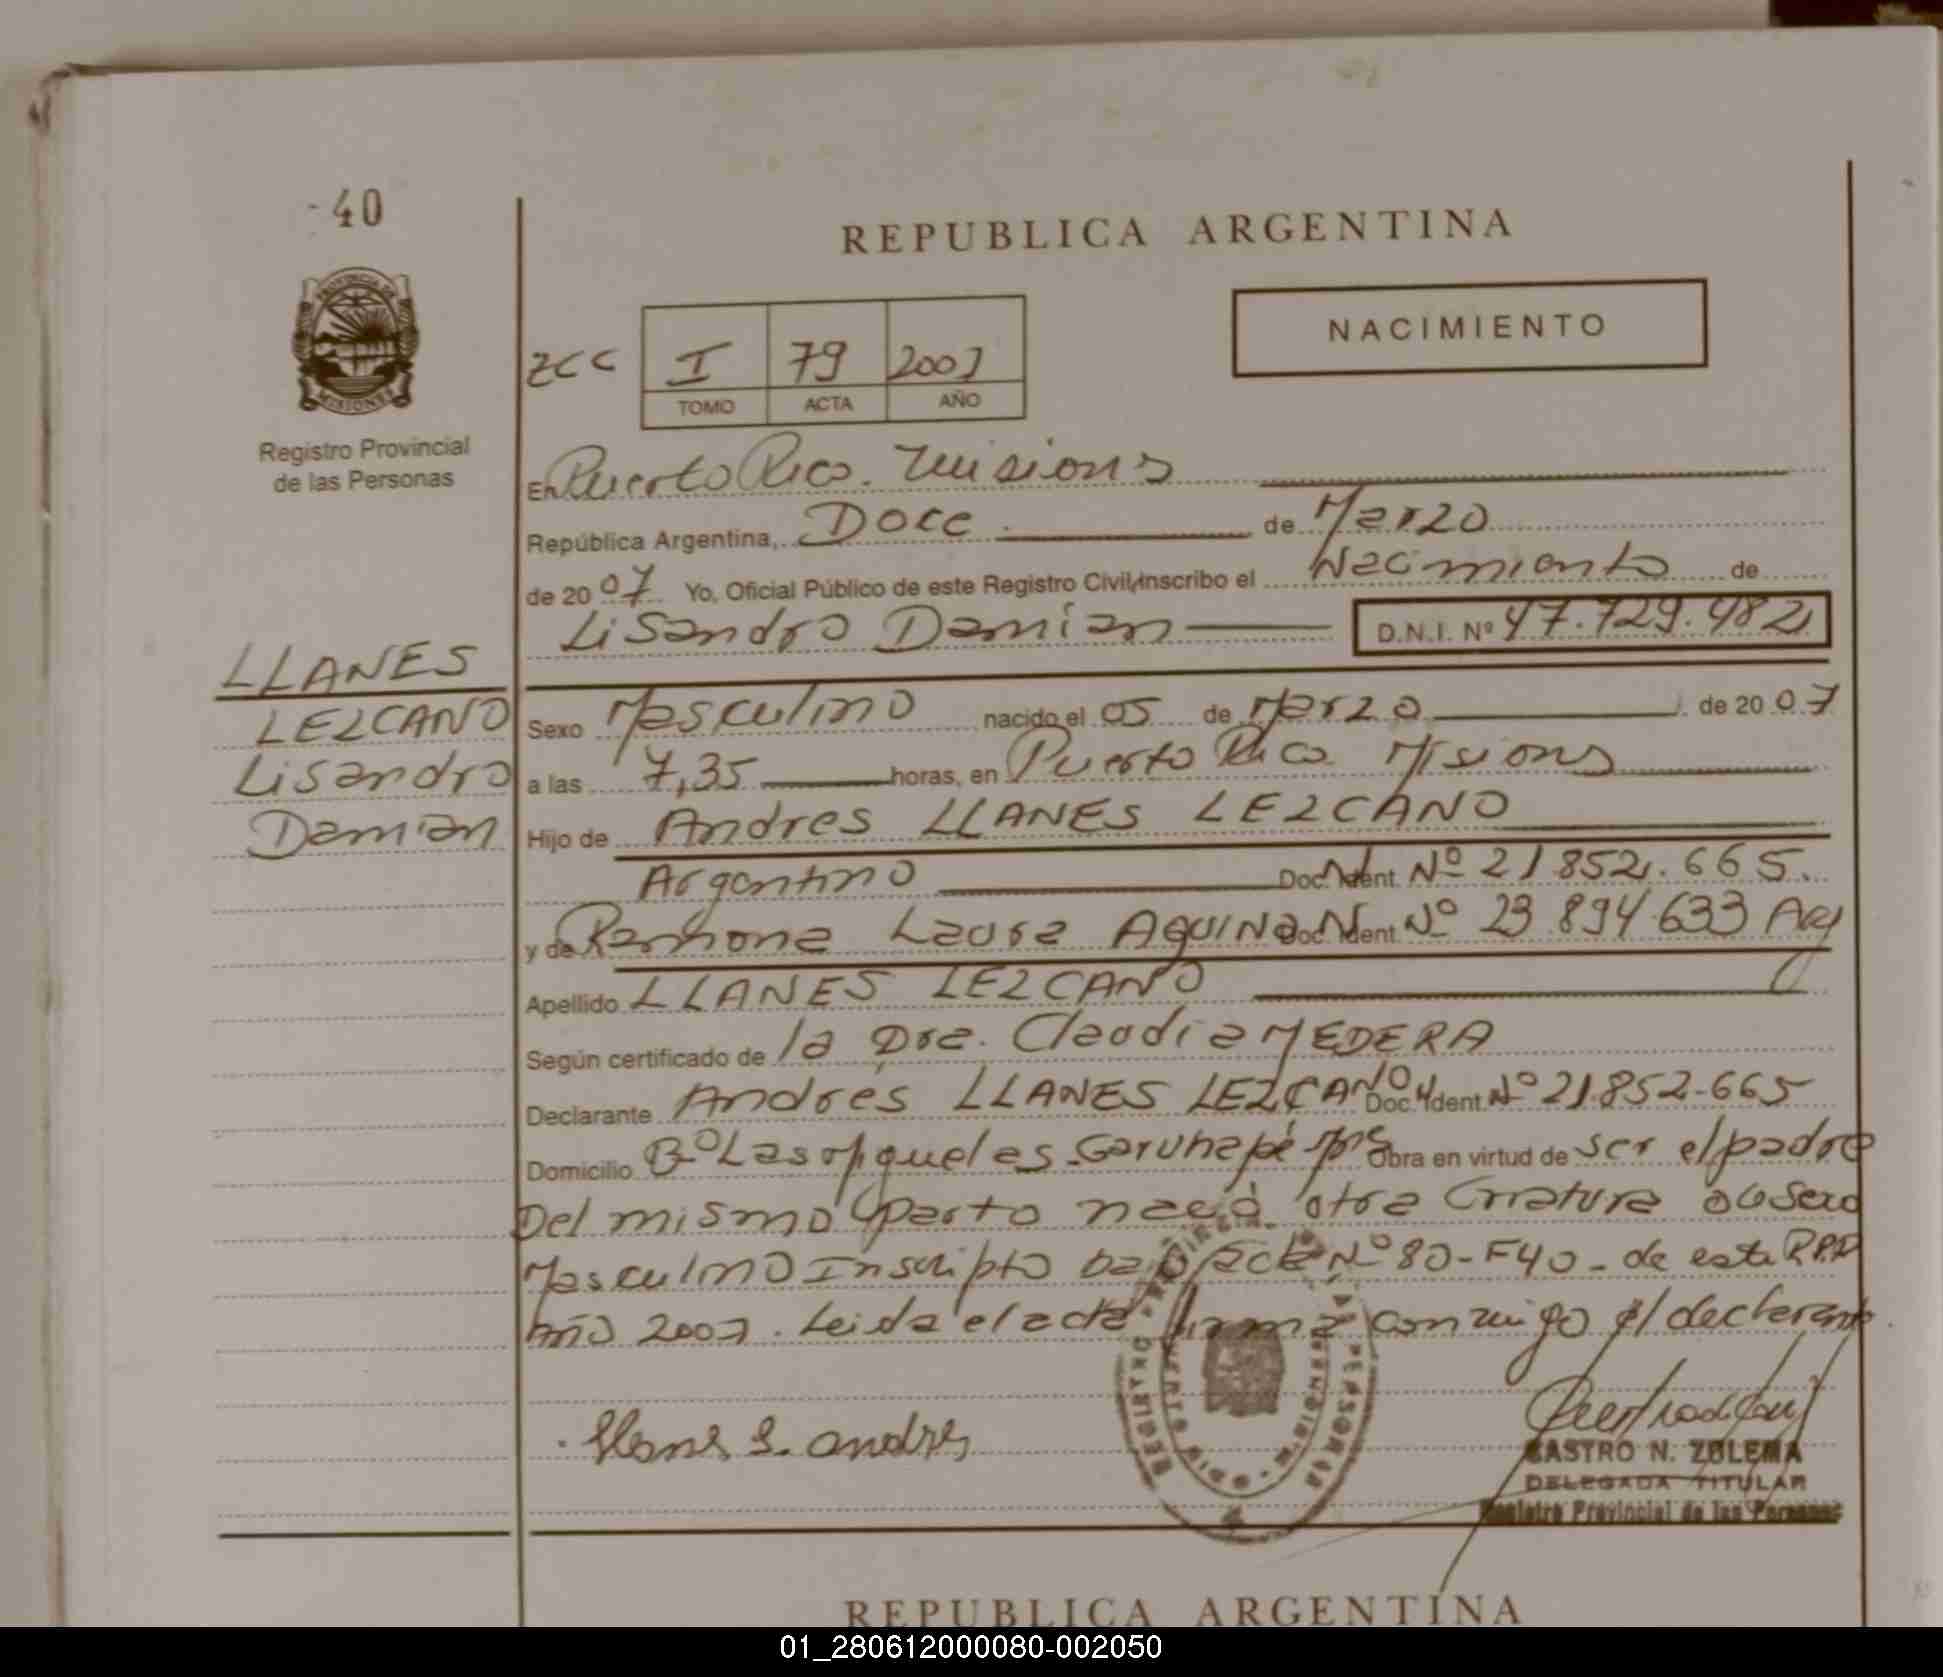 40
REPUBLICA ARGENTINA
PROVINCIA DE MISIONES
Registro Provincial
de las Personas
NACIMIENTO
ZCC I 79 2007
TOMO ACTA AÑO
En Puerto Rico. Misions
República Argentina, Doce de Marzo
de 2007 Yo, Oficial Público de este Registro Civil, inscribo el Nacimiento de
Lisandro Damian D.N.I. Nº 47.729.482
LLANES
LEZCANO
Lisandro
Damian
Sexo Masculino nacido el 05 de Marzo de 2007
a las 7,35 horas, en Puerto Rico Misions
Hijo de Andres LLANES LEZCANO
Argentino Doc. Ident. Nº 21.852.665.
y de Ramona Laura AQUINO Doc. Ident. Nº 23.894.633 Arg
Apellido LLANES LEZCANO
Según certificado de la Dra. Claudia MEDERA
Declarante Andres LLANES LEZCANO Doc. Ident. Nº 21.852.665
Domicilio Bº Las Miqueles Garuhapé Mnes Obra en virtud de ser el padre
Del mismo parto nació otra Criatura de Sexo
Masculino Inscripto bajo acta Nº 80-F40- de este R.P.P
Año 2007. Leida el acta firma conmigo el declarante.
Llanes L. andres
CASTRO N. ZULEMA
DELEGADA TITULAR
Registro Provincial de las Personas
REPUBLICA ARGENTINA
01_280612000080-002050